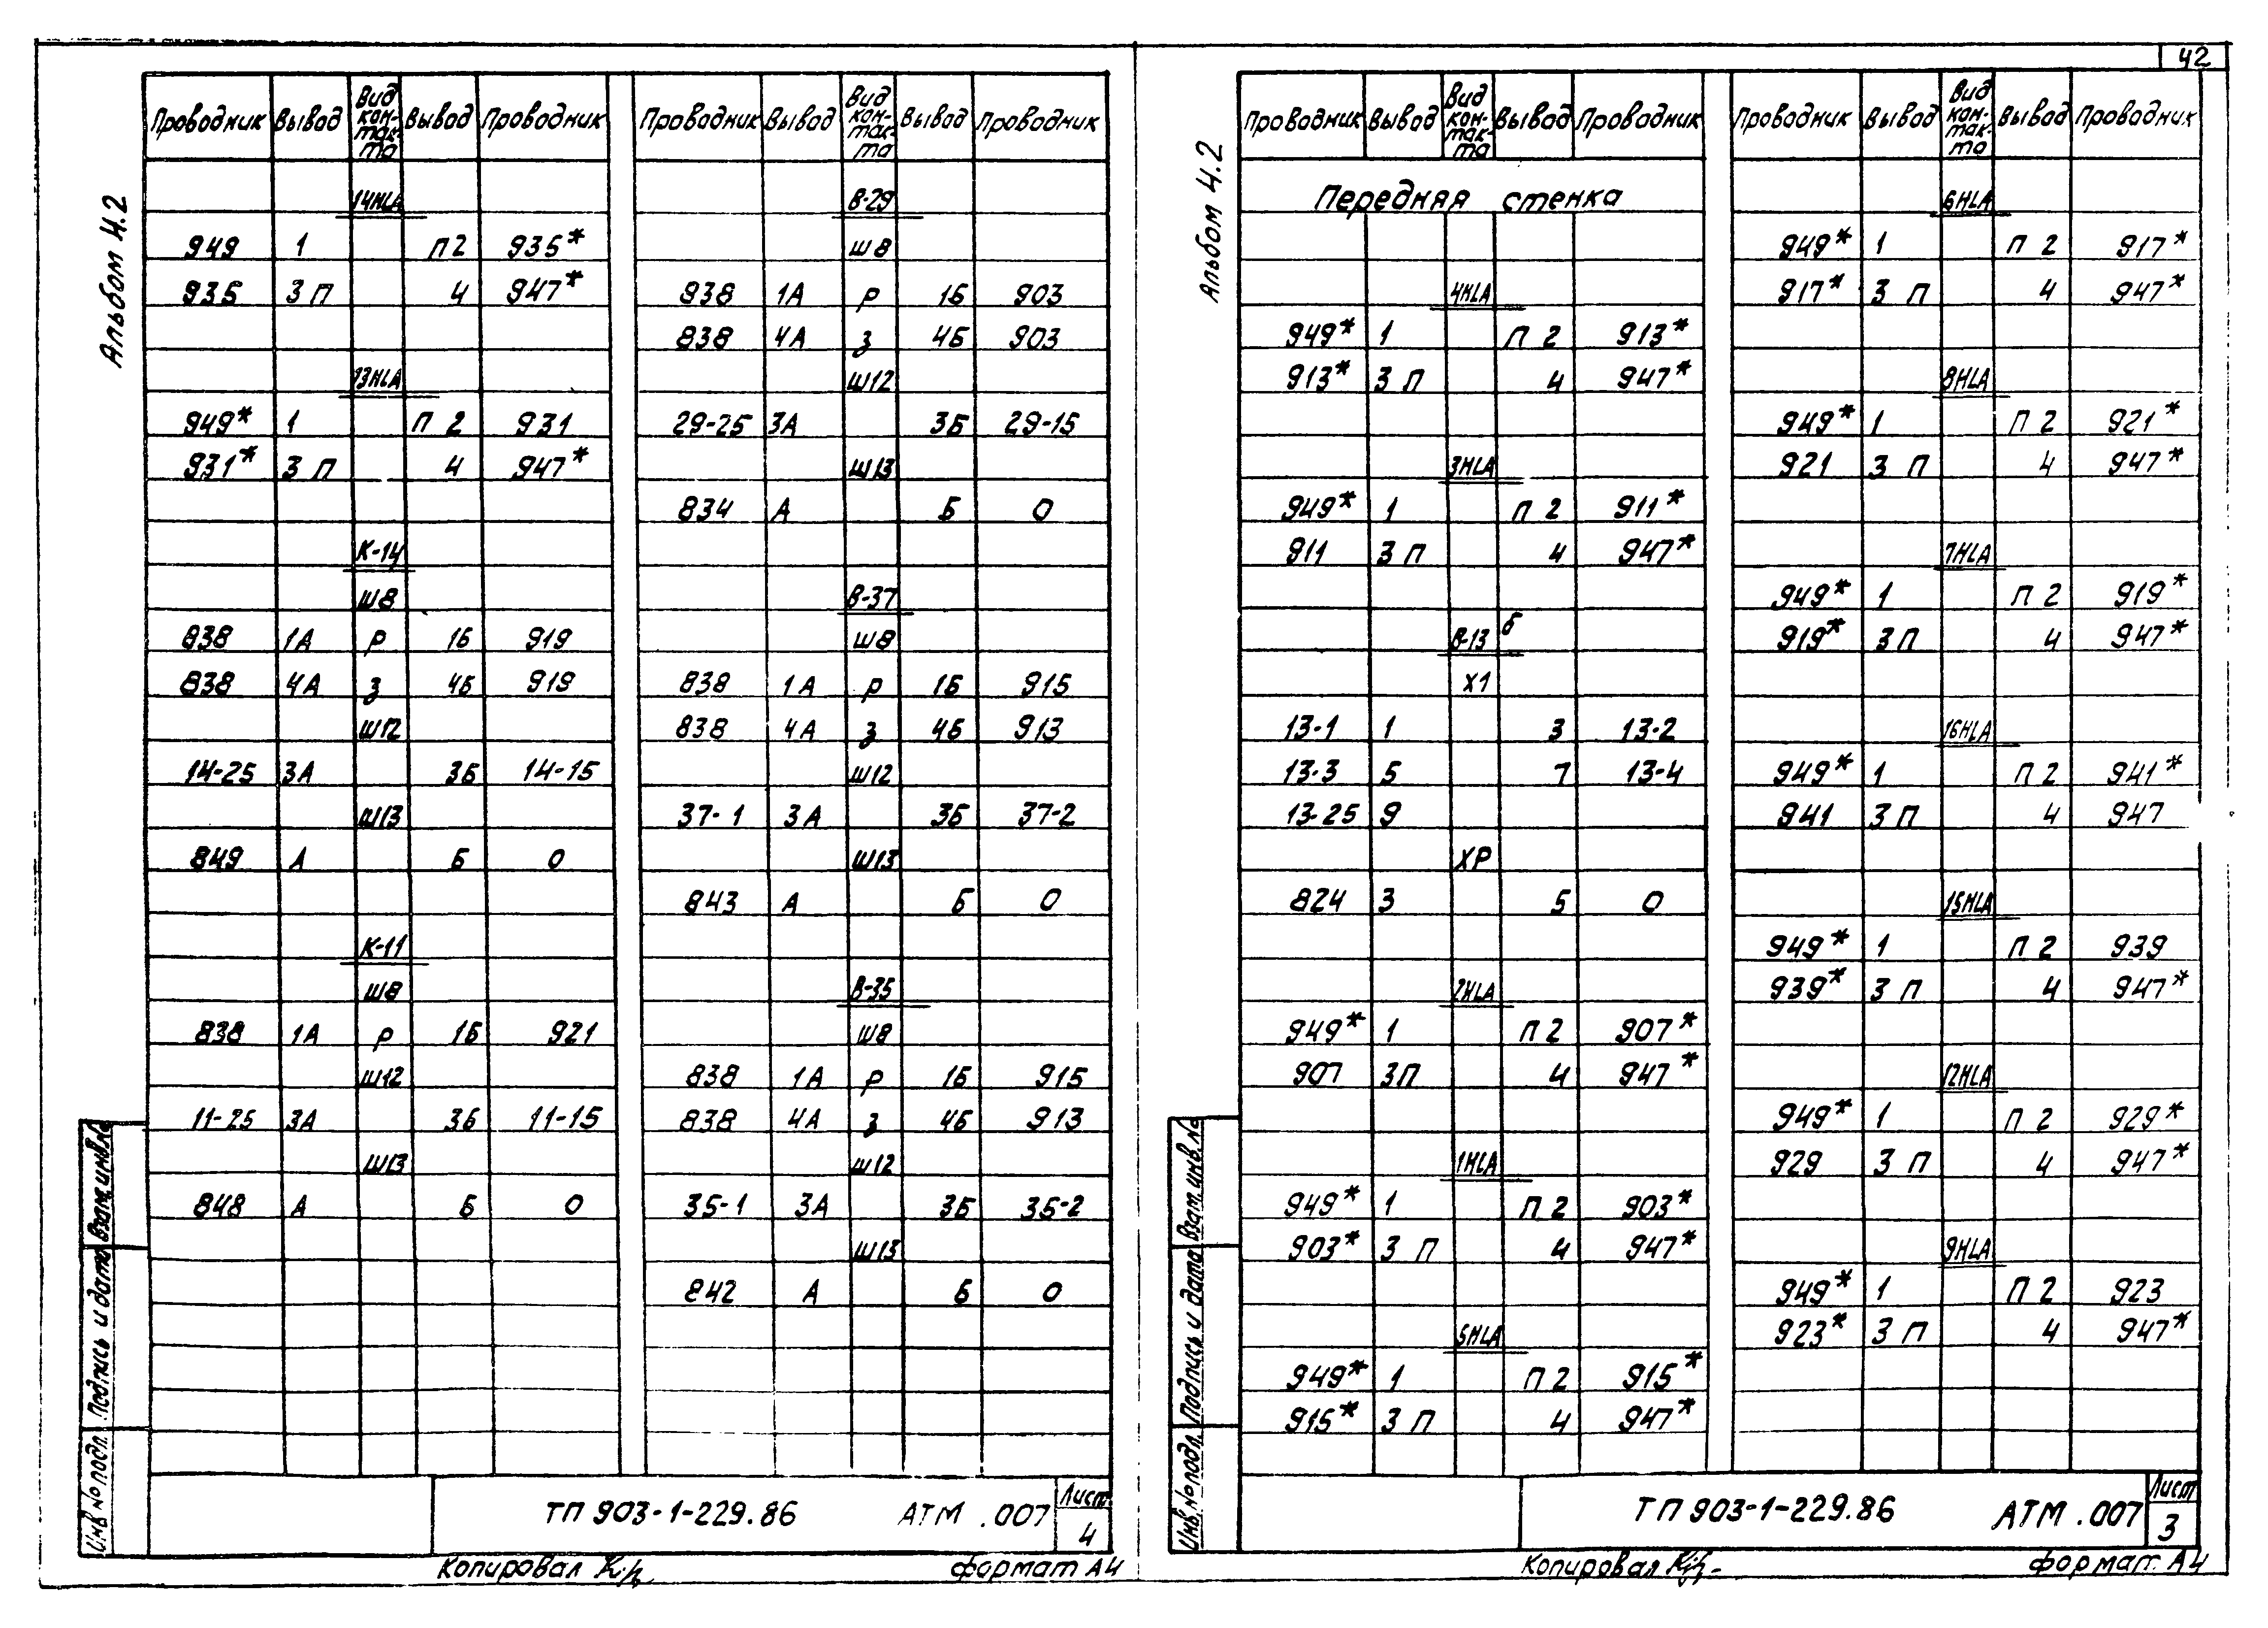 42
Альбом 4.2
Проводник Вывод Вид кон-так-та Вывод Проводник
14HLA
949 1 П 2 935*
935 3 П 4 947*
13HLA
949* 1 П 2 931
931* 3 П 4 947*
К-14
Ш8
838 1А Р 1Б 919
838 4А З 4Б 919
Ш12
14-25 3А 3Б 14-15
Ш13
849 А Б 0
К-11
Ш8
838 1А Р 1Б 921
Ш12
11-25 3А 3Б 11-15
Ш13
848 А Б 0
Проводник Вывод Вид кон-так-та Вывод Проводник
В-29
Ш8
838 1А Р 1Б 903
838 4А З 4Б 903
Ш12
29-25 3А 3Б 29-15
Ш13
834 А Б 0
В-37
Ш8
838 1А Р 1Б 915
838 4А З 4Б 913
Ш12
37-1 3А 3Б 37-2
Ш13
843 А Б 0
В-35
Ш8
838 1А Р 1Б 915
838 4А З 4Б 913
Ш12
35-1 3А 3Б 35-2
Ш13
842 А Б 0
Инв.№ подл. Подпись и дата Взам.инв.№
ТП 903-1-229.86 АТМ .007 Лист 4
Копировал
формат А4
Альбом 4.2
Проводник Вывод Вид кон-так-та Вывод Проводник
Передняя стенка
4HLA
949* 1 П 2 913*
913* 3 П 4 947*
3HLA
949* 1 П 2 911*
911 3 П 4 947*
В-13 б
Х1
13-1 1 3 13-2
13-3 5 7 13-4
13-25 9
ХР
824 3 5 0
2HLA
949* 1 П 2 907*
907 3 П 4 947*
1HLA
949* 1 П 2 903*
903* 3 П 4 947*
5HLA
949* 1 П 2 915*
915* 3 П 4 947*
Проводник Вывод Вид кон-так-та Вывод Проводник
6HLA
949* 1 П 2 917*
917* 3 П 4 947*
8HLA
949* 1 П 2 921*
921 3 П 4 947*
7HLA
949* 1 П 2 919*
919* 3 П 4 947*
16HLA
949* 1 П 2 941*
941 3 П 4 947
15HLA
949* 1 П 2 939
939* 3 П 4 947*
12HLA
949* 1 П 2 929*
929 3 П 4 947*
9HLA
949* 1 П 2 923
923* 3 П 4 947*
Инв.№ подл. Подпись и дата Взам.инв.№
ТП 903-1-229.86 АТМ .007 Лист 3
Копировал
формат А4